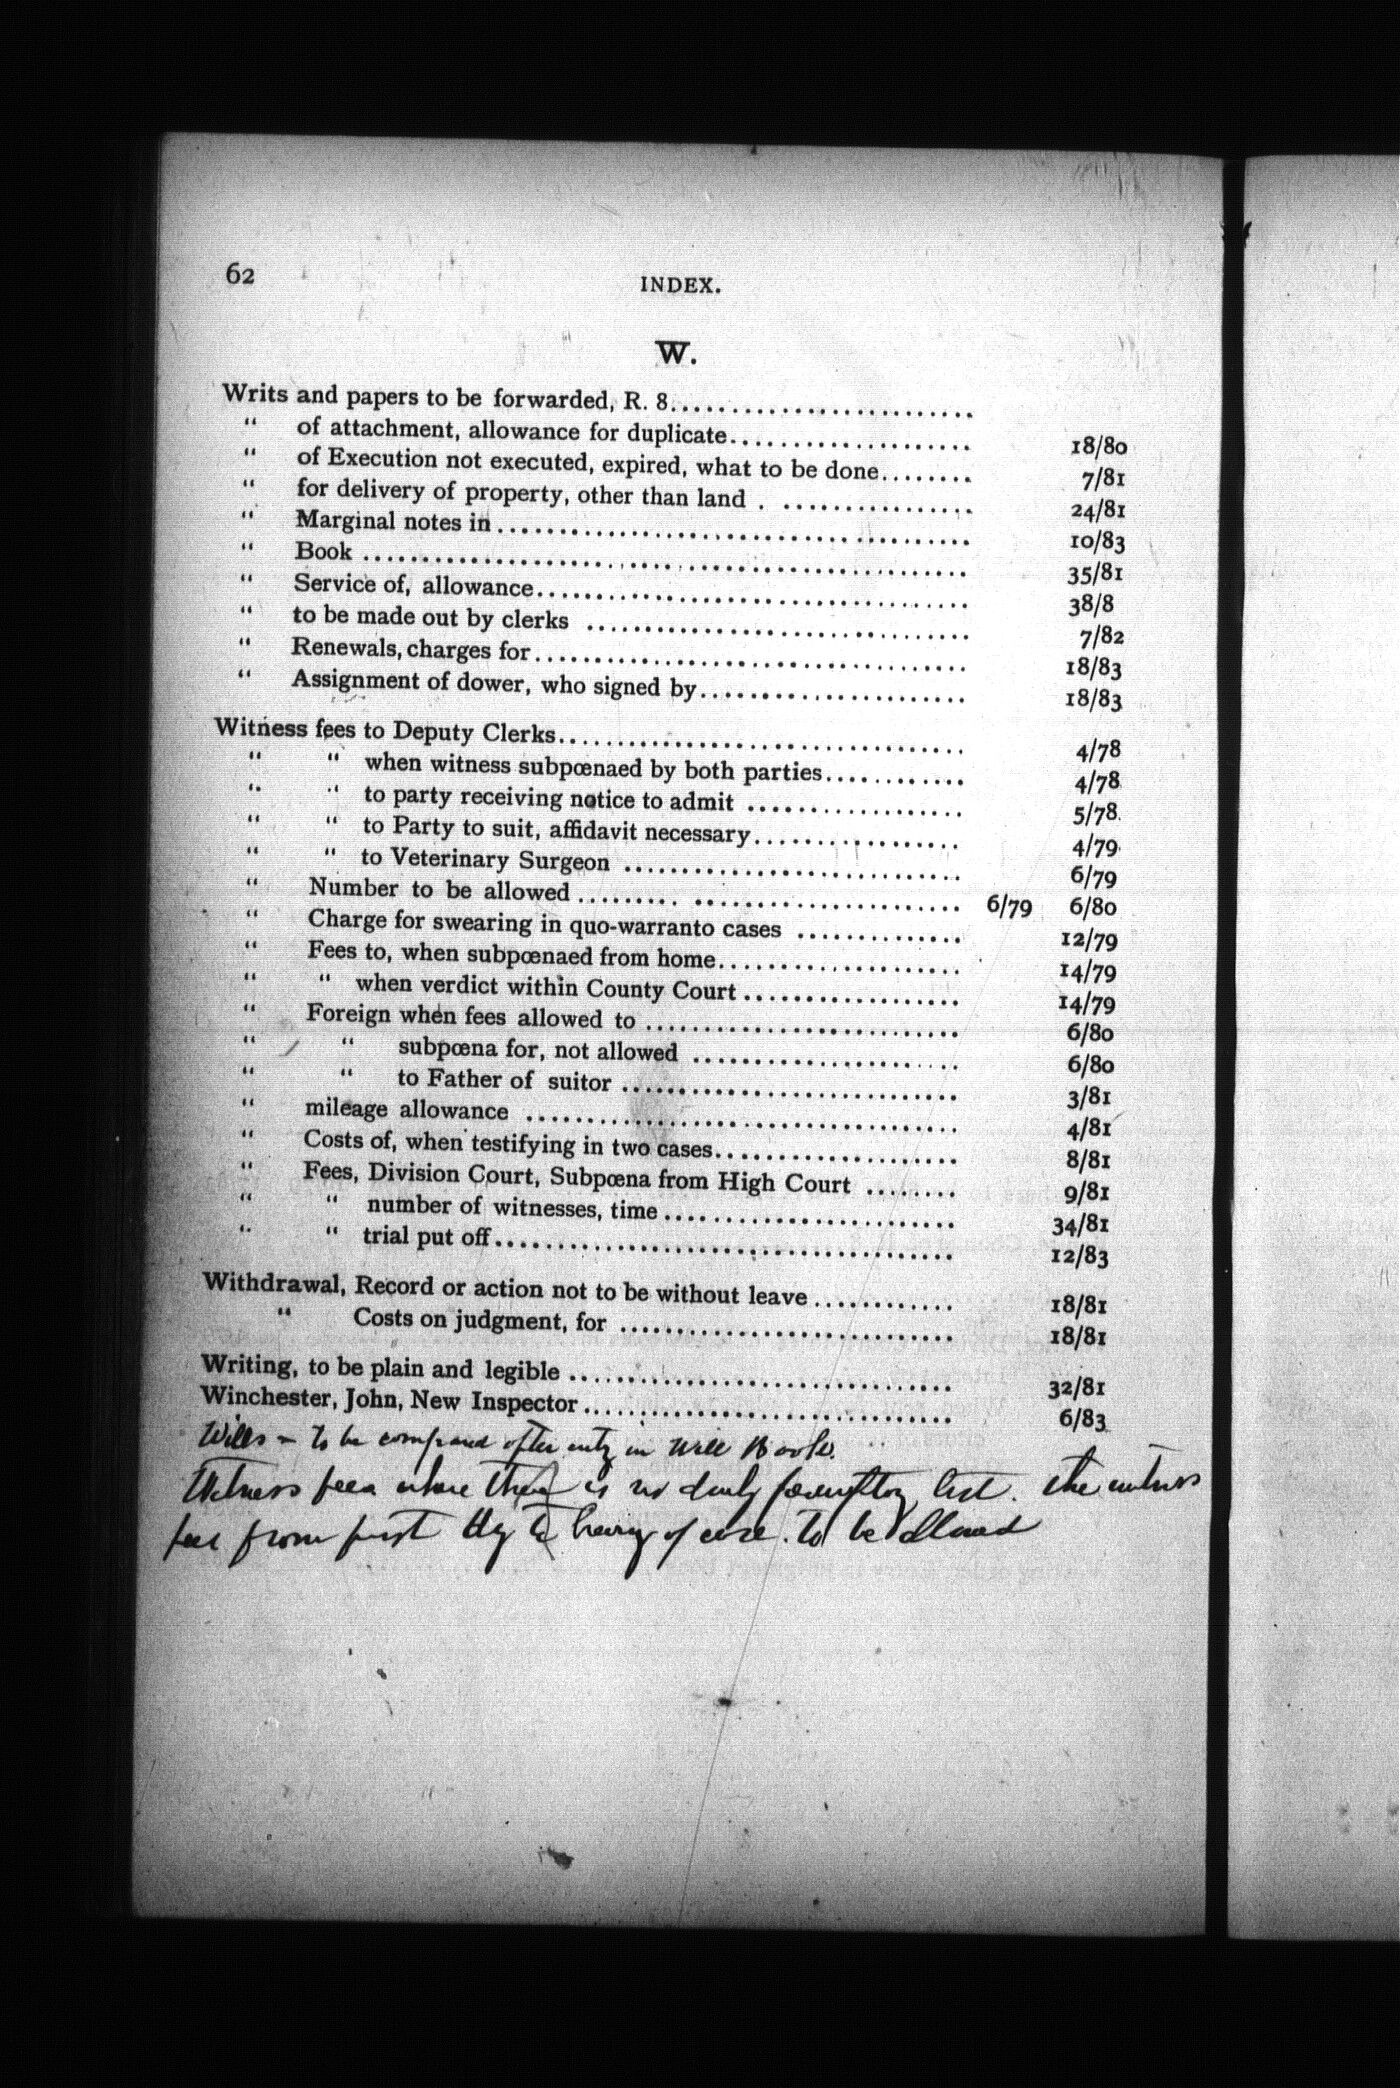 62
INDEX.
W.
Writs and papers to be forwarded, R. 8..........................
" of attachment, allowance for duplicate.................... 18/80
" of Execution not executed, expired, what to be done........ 7/81
" for delivery of property, other than land . ................ 24/81
" Marginal notes in ........................................ 10/83
" Book .................................................... 35/81
" Service of, allowance..................................... 38/8
" to be made out by clerks ................................. 7/82
" Renewals, charges for..................................... 18/83
" Assignment of dower, who signed by....................... 18/83
Witness fees to Deputy Clerks.................................. 4/78
" " when witness subpœnaed by both parties............ 4/78
" " to party receiving notice to admit .................. 5/78
" " to Party to suit, affidavit necessary.................. 4/79
" " to Veterinary Surgeon ............................. 6/79
" Number to be allowed ......... ....................... 6/79 6/80
" Charge for swearing in quo-warranto cases .............. 12/79
" Fees to, when subpœnaed from home..................... 14/79
" " when verdict within County Court ................... 14/79
" Foreign when fees allowed to ........................... 6/80
" " subpœna for, not allowed ..................... 6/80
" " to Father of suitor ............................ 3/81
" mileage allowance ..................................... 4/81
" Costs of, when testifying in two cases..................... 8/81
" Fees, Division Court, Subpœna from High Court ........ 9/81
" " number of witnesses, time ......................... 34/81
" " trial put off....................................... 12/83
Withdrawal, Record or action not to be without leave ............ 18/81
" Costs on judgment, for ............................ 18/81
Writing, to be plain and legible ................................. 32/81
Winchester, John, New Inspector................................ 6/83
Wills – to be compared after entry in Will Book.
Witness fees where there is no daily peremptory list. the witness
fees from first day to hearing of case. to be allowed